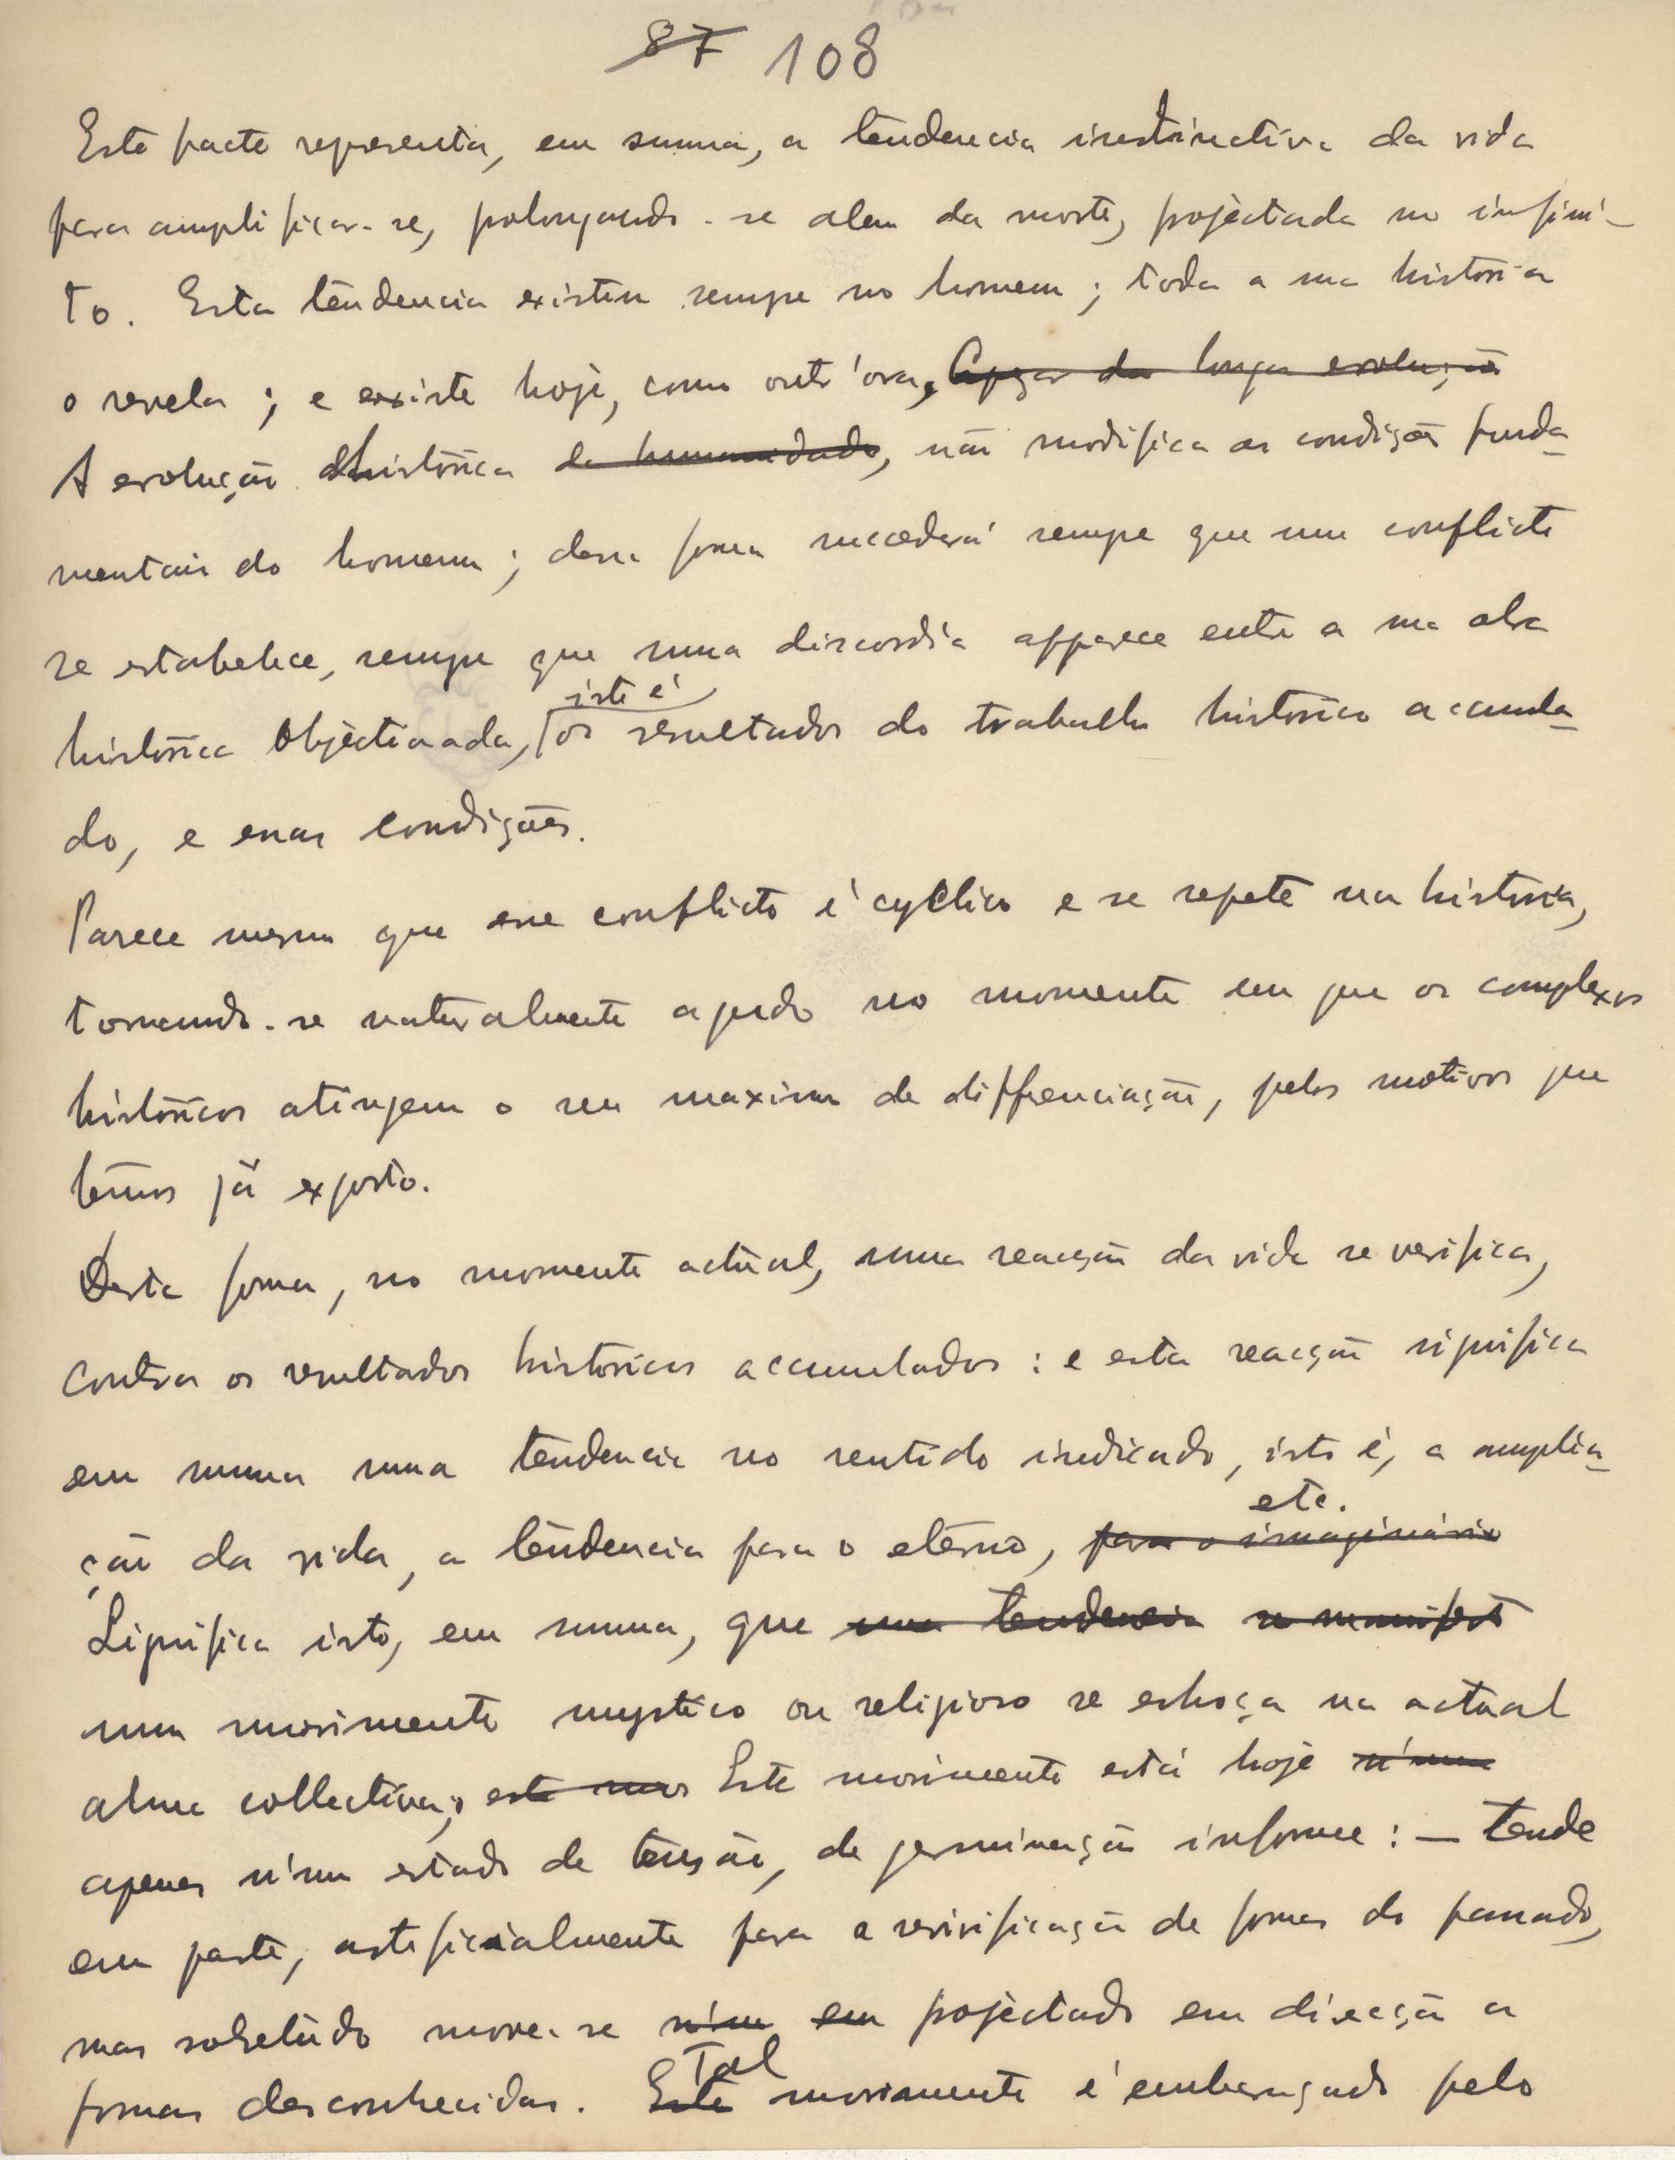 87 108
Este facto representa, em summa, a tendencia instinctiva da vida
para amplificar-se, prolongando-se alem da morte, projectada no infini-
to. Esta tendencia existiu sempre no homem; toda a sua historia
o revela; e existe hoje, como outr'ora, Apezar da longa evolução
A evolução historica da humanidade, não modifica as condições funda-
mentais do homem; dessa forma succederá sempre que um conflicto
se estabelece, sempre que uma discordia apparece entre a sua obra
isto é
historica objectivada, os resultados do trabalho historico accumula-
do, e essas condições.
Parece mesmo que esse conflicto é cyclico e se repete na historia,
tornando-se naturalmente agudo no momento em que os complexos
historicos atingem o seu maximo de differenciação, pelos motivos que
temos já exposto.
Desta forma, no momento actual, uma reacção da vida se verifica,
contra os resultados historicos accumulados: e esta reacção significa
em summa uma tendencia no sentido indicado, isto é, a amplia-
etc.
ção da vida, a tendencia para o eterno, para o imaginário
Significa isto, em summa, que uma tendencia se manifesta
um movimento mystico ou religioso se esboça na actual
alma collectiva; este mov Este movimento está hoje n'um
apenas n'um estado de tensão, de germinação informe: — tende
em parte, artificialmente para a revivificação de formas do passado,
mas sobretudo move-se n'um em projectado em direcção a
Tal
formas desconhecidas. Este movimento é embaraçado pelo